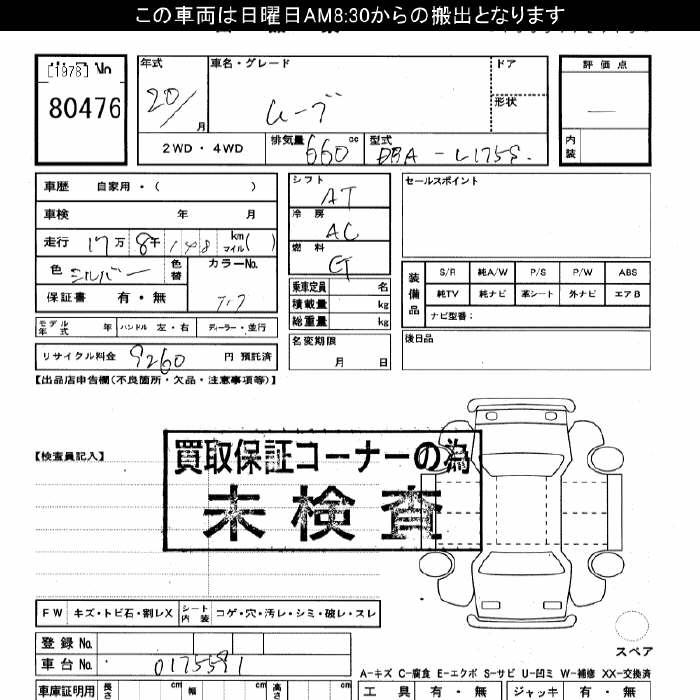 この車両は日曜日AM8:30からの搬出となります
[1978] No
80476
年式 20/ 月
車名・グレード
ムーブ
ドア
形状
評価点
内装
2WD・4WD
排気量 660 cc
型式 DBA-L175S.
車歴 自家用・( )
車検 年 月
走行 17万 8千 148 km マイル( )
色 シルバー 色替 カラーNo.
保証書 有・無
モデル年式 年 ハンドル 左・右 ディーラー・並行
リサイクル料金 9260 円 預託済
シフト AT
冷房 AC
燃料 G
乗車定員 名
積載量 kg
総重量 kg
名変期限
月 日
セールスポイント
装備品
S/R 純A/W P/S P/W ABS
純TV 純ナビ 革シート 外ナビ エアB
ナビ型番:
後日品
【出品店申告欄(不良箇所・欠品・注意事項等)】
【検査員記入】
買取保証コーナーの為
未検査
FW キズ・トビ石・割レX シート内装 コゲ・穴・汚レ・シミ・破レ・スレ
登録No.
車台No. 0175591
スペア
A-キズ C-腐食 E-エクボ S-サビ U-凹ミ W-補修 XX-交換済
車庫証明用 長さ cm 幅 cm 高さ cm
工具 有・無 ジャッキ 有・無